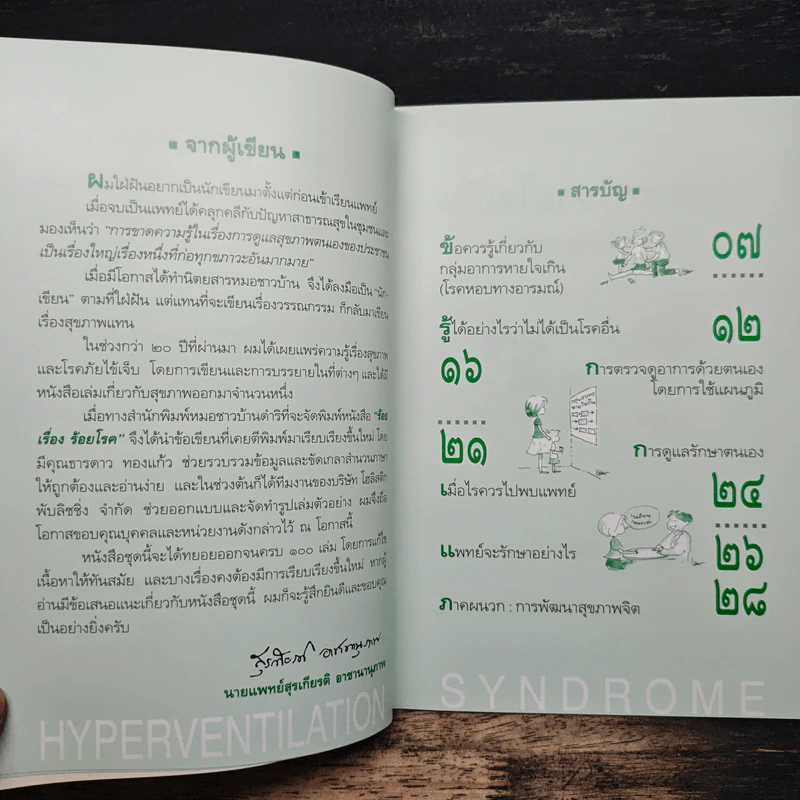 จากผู้เขียน
ผมใฝ่ฝันอยากเป็นนักเขียนมาตั้งแต่ก่อนเข้าเรียนแพทย์
เมื่อจบเป็นแพทย์ได้คลุกคลีกับปัญหาสาธารณสุขในชุมชนและ
มองเห็นว่า “การขาดความรู้ในเรื่องการดูแลสุขภาพตนเองของประชาชน
เป็นเรื่องใหญ่เรื่องหนึ่งที่ก่อทุกขภาวะอันมากมาย”
เมื่อมีโอกาสได้ทำนิตยสารหมอชาวบ้าน จึงได้ลงมือเป็น “นัก-
เขียน” ตามที่ใฝ่ฝัน แต่แทนที่จะเขียนเรื่องวรรณกรรม ก็กลับมาเขียน
เรื่องสุขภาพแทน
ในช่วงกว่า ๒๐ ปีที่ผ่านมา ผมได้เผยแพร่ความรู้เรื่องสุขภาพ
และโรคภัยไข้เจ็บ โดยการเขียนและการบรรยายในที่ต่างๆ และได้มี
หนังสือเล่มเกี่ยวกับสุขภาพออกมาจำนวนหนึ่ง
เมื่อทางสำนักพิมพ์หมอชาวบ้านดำริที่จะจัดพิมพ์หนังสือ “ร้อย
เรื่อง ร้อยโรค” จึงได้นำข้อเขียนที่เคยตีพิมพ์มาเรียบเรียงขึ้นใหม่ โดย
มีคุณธารดาว ทองแก้ว ช่วยรวบรวมข้อมูลและขัดเกลาสำนวนภาษา
ให้ถูกต้องและอ่านง่าย และในช่วงต้นก็ได้ทีมงานของบริษัท โฮลิสติก
พับลิชชิ่ง จำกัด ช่วยออกแบบและจัดทำรูปเล่มตัวอย่าง ผมจึงถือ
โอกาสขอบคุณบุคคลและหน่วยงานดังกล่าวไว้ ณ โอกาสนี้
หนังสือชุดนี้จะได้ทยอยออกจนครบ ๑๐๐ เล่ม โดยการแก้ไข
เนื้อหาให้ทันสมัย และบางเรื่องคงต้องมีการเรียบเรียงขึ้นใหม่ หากผู้
อ่านมีข้อเสนอแนะเกี่ยวกับหนังสือชุดนี้ ผมก็จะรู้สึกยินดีและขอบคุณ
เป็นอย่างยิ่งครับ
นายแพทย์สุรเกียรติ อาชานานุภาพ
HYPERVENTILATION
สารบัญ
ข้อควรรู้เกี่ยวกับ
กลุ่มอาการหายใจเกิน
(โรคหอบทางอารมณ์)
๐๗
รู้ได้อย่างไรว่าไม่ได้เป็นโรคอื่น
๑๒
๑๖
การตรวจดูอาการด้วยตนเอง
โดยการใช้แผนภูมิ
๒๑
การดูแลรักษาตนเอง
เมื่อไรควรไปพบแพทย์
๒๔
แพทย์จะรักษาอย่างไร
๒๖
๒๘
ภาคผนวก : การพัฒนาสุขภาพจิต
SYNDROME